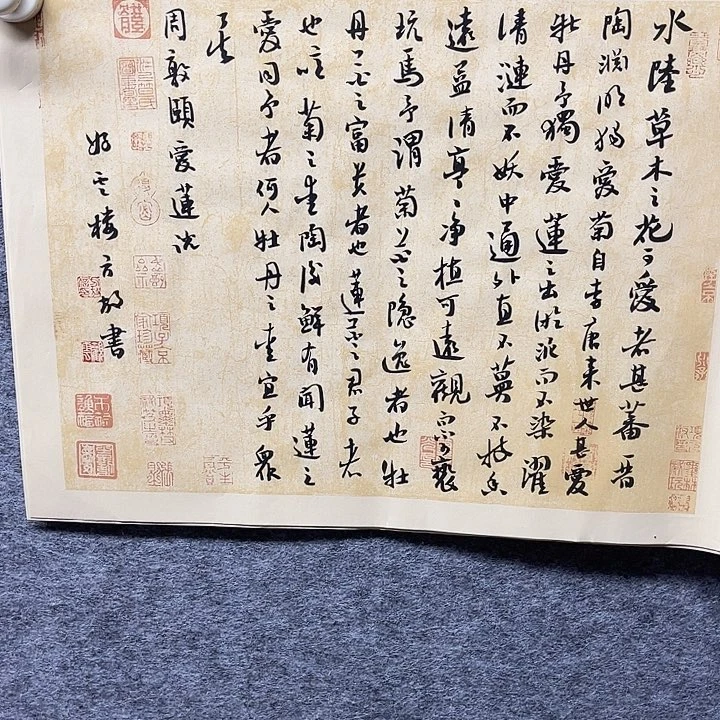 水陸草木之花可愛者甚蕃晋
陶淵明独愛菊自李唐来世人甚愛
牡丹予獨愛蓮之出淤泥而不染濯
清漣而不妖中通外直不蔓不枝香
遠益清亭亭净植可遠觀而不可褻
玩焉予謂菊花之隐逸者也牡
丹花之富貴者也蓮花之君子者
也噫菊之愛陶後鮮有聞蓮之
愛同予者何人牡丹之愛宜乎衆
矣
周敦頤愛蓮說
書